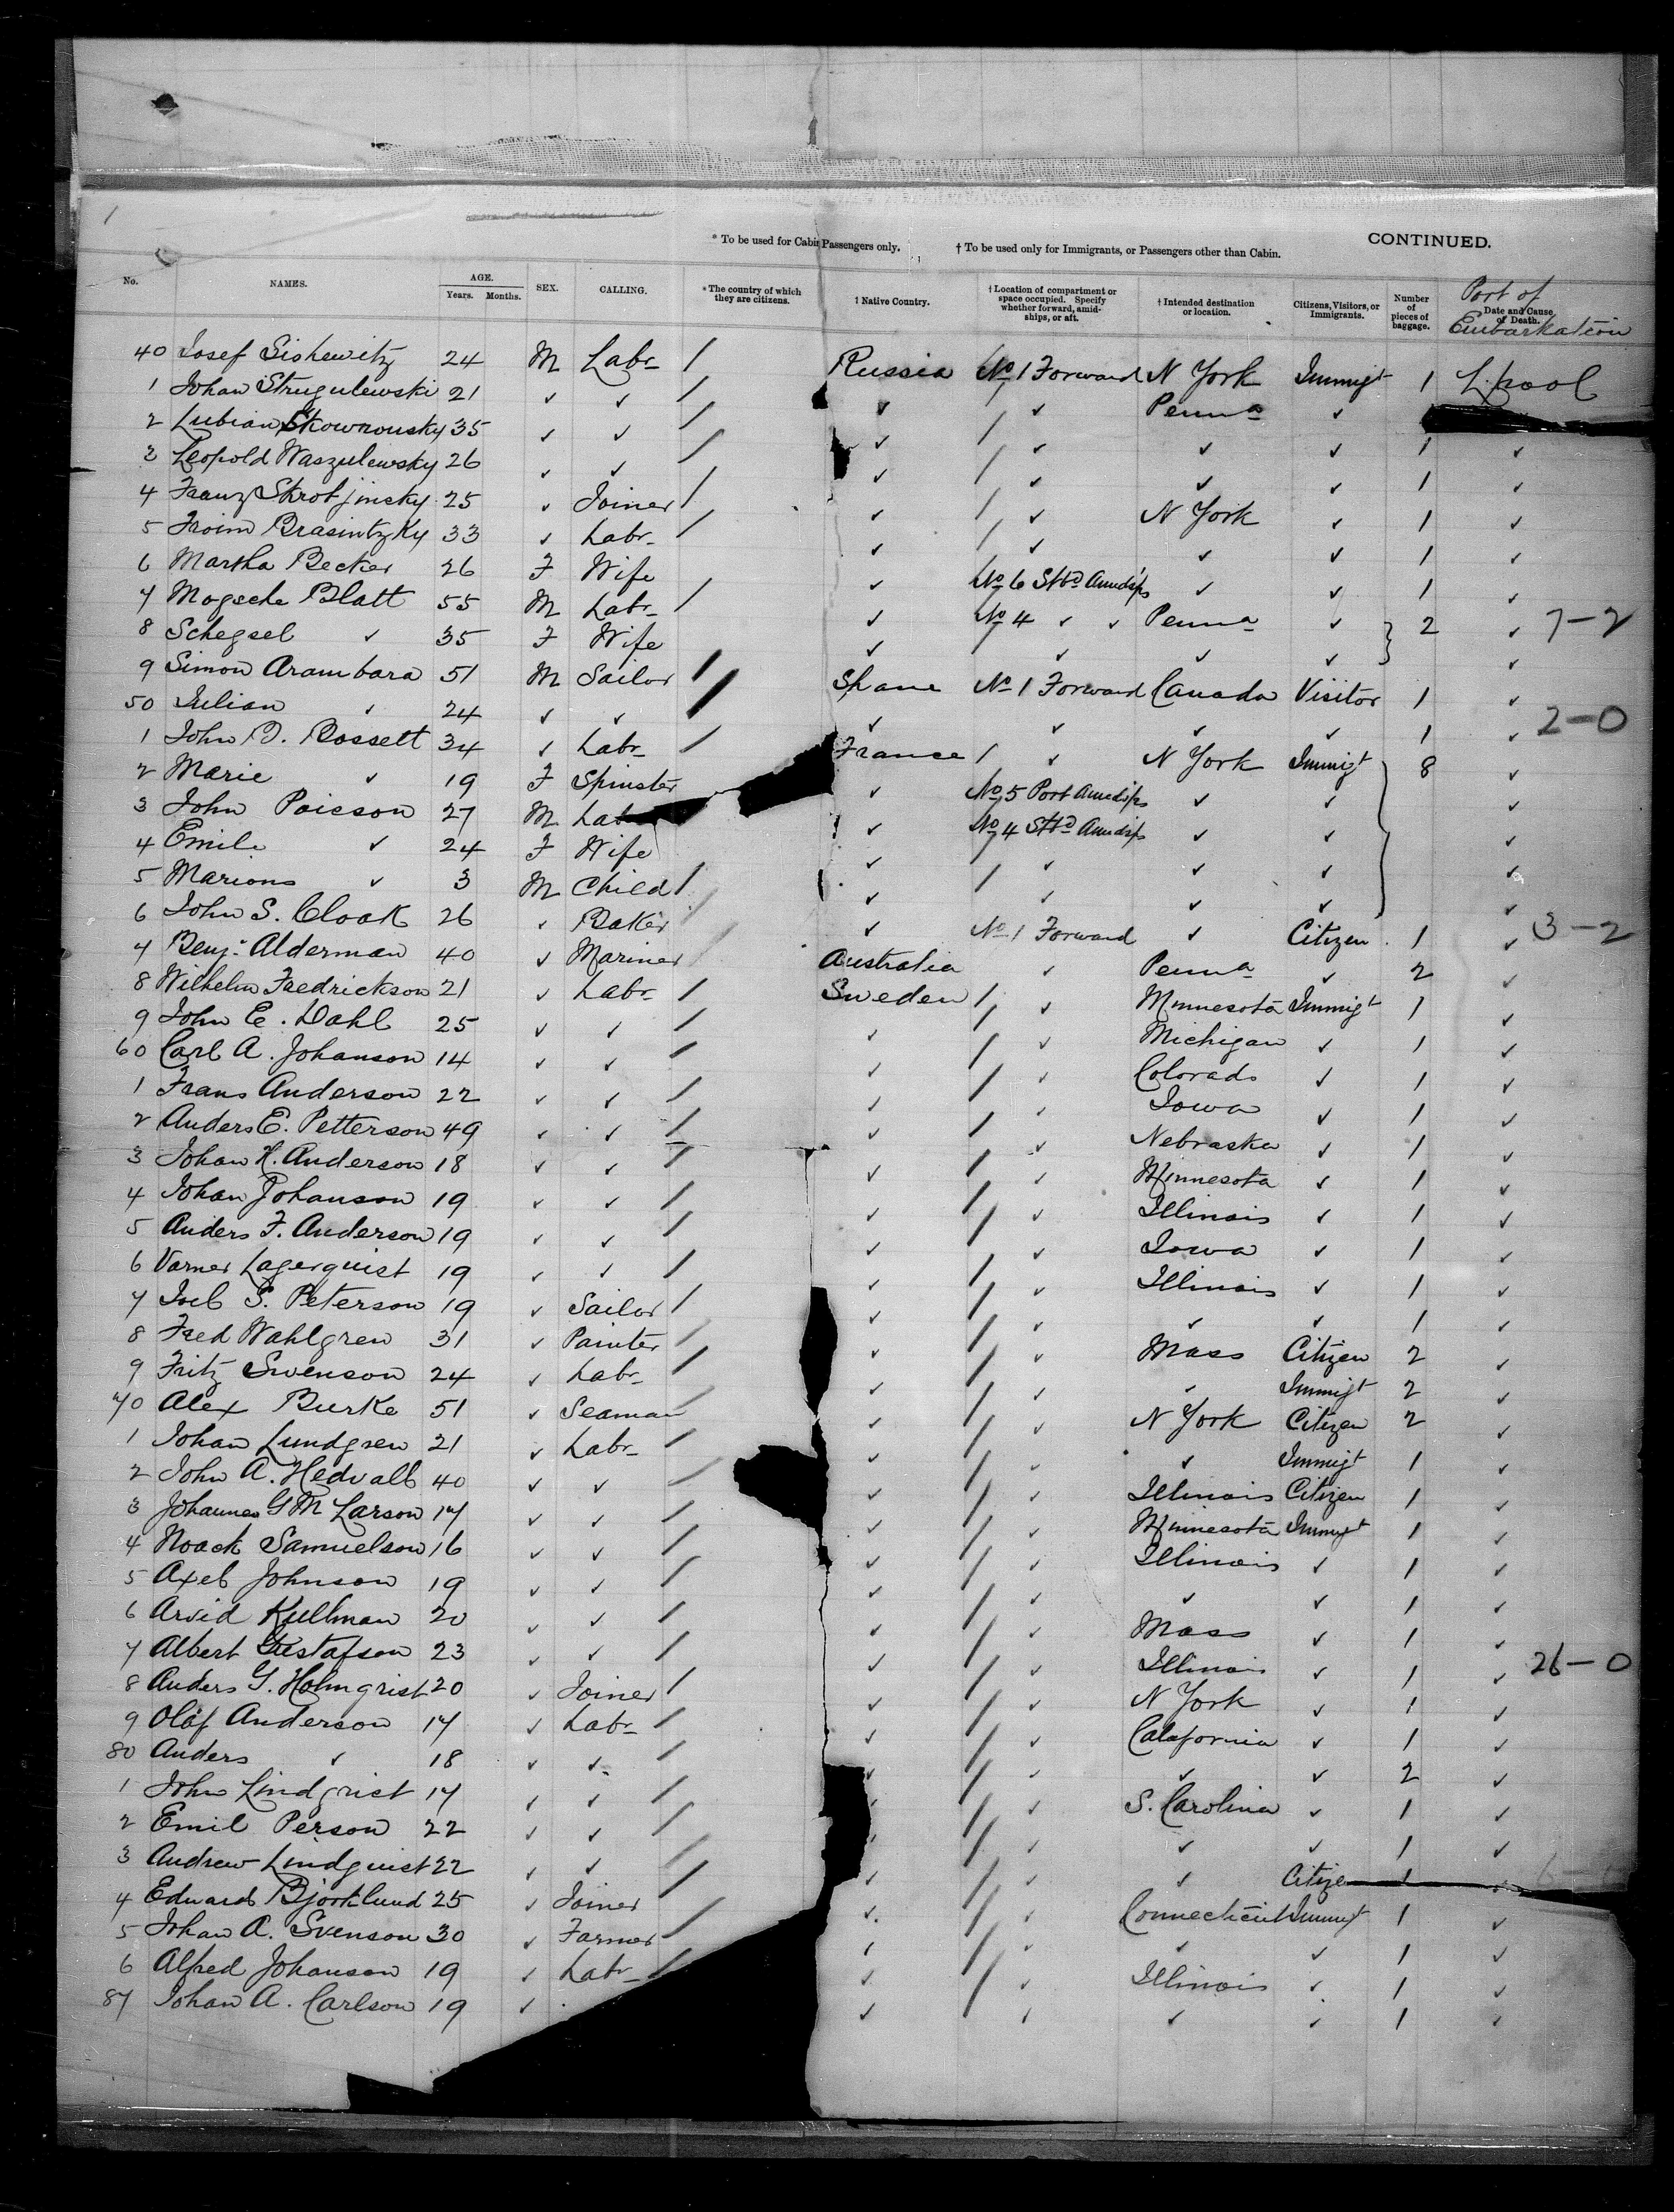 1
* To be used for Cabin Passengers only. † To be used only for Immigrants, or Passengers other than Cabin. CONTINUED.
No. NAMES. AGE. Years. Months. SEX. CALLING. * The country of which they are citizens. † Native Country. † Location of compartment or space occupied. Specify whether forward, amidships, or aft. † Intended destination or location. Citizens, Visitors, or Immigrants. Number of pieces of baggage. Date and Cause of Death. Port of Embarkation
40 Josef Sishewitz 24 M Labr / Russia No 1 Forward N York Immigt 1 L.pool
1 Johan Strugulewski 21 ✓ ✓ / ✓ ✓ Penna ✓
2 Lubian Skownousky 35 ✓ ✓ / ✓ / ✓ ✓ ✓ 1 ✓
3 Leopold Waszulewsky 26 ✓ ✓ / ✓ / ✓ ✓ ✓ 1 ✓
4 Franz Skrotjinsky 25 ✓ Joiner / ✓ / ✓ N York ✓ 1 ✓
5 Froim Brasintzky 33 ✓ Labr / ✓ / ✓ ✓ ✓ 1 ✓
6 Martha Becker 26 F Wife ✓ No 6 Stbd Amidsps ✓ ✓ 1 ✓
7 Mogsche Blatt 55 M Labr / ✓ No 4 ✓ ✓ Penna ✓ 2 ✓ 7-2
8 Schegsel ✓ 35 F Wife ✓ ✓ ✓ ✓ ✓
9 Simon Arambara 51 M Sailor / Spane No 1 Forward Canada Visitor 1 ✓
50 Julian ✓ 24 ✓ ✓ / ✓ ✓ ✓ ✓ 1 ✓ 2-0
1 John D. Bossett 34 ✓ Labr / France / ✓ N York Immigt 8 ✓
2 Marie ✓ 19 F Spinster ✓ No 5 Port Amidsps ✓ ✓ ✓
3 John Poisson 27 M Labr ✓ No 4 Stbd Amidsps ✓ ✓ ✓
4 Emile ✓ 24 F Wife ✓ / ✓ ✓ ✓ ✓
5 Marions ✓ 3 M Child / ✓ ✓ ✓ ✓ ✓
6 John S. Cloak 26 ✓ Baker / ✓ No 1 Forward ✓ Citizen 1 ✓ 3-2
7 Benj: Alderman 40 ✓ Mariner / Australia ✓ Penna ✓ 2 ✓
8 Wilhelm Fredrickson 21 ✓ Labr / Sweden / ✓ Minnesota Immigt 1 ✓
9 John E. Dahl 25 ✓ ✓ / ✓ / ✓ Michigan ✓ 1 ✓
60 Carl A. Johanson 14 ✓ ✓ / ✓ / ✓ Colorado ✓ 1 ✓
1 Frans Anderson 22 ✓ ✓ / ✓ / ✓ Iowa ✓ 1 ✓
2 Anders E. Petterson 49 ✓ ✓ / ✓ / ✓ Nebraska ✓ 1 ✓
3 Johan H. Anderson 18 ✓ ✓ / ✓ / ✓ Minnesota ✓ 1 ✓
4 Johan Johanson 19 ✓ ✓ / ✓ / ✓ Illinois ✓ 1 ✓
5 Anders F. Anderson 19 ✓ ✓ / ✓ / ✓ Iowa ✓ 1 ✓
6 Varner Lagerquist 19 ✓ ✓ / ✓ / ✓ Illinois ✓ 1 ✓
7 Joel S. Peterson 19 ✓ Sailor / ✓ / ✓ ✓ ✓ 1 ✓
8 Fred Wahlgren 31 ✓ Painter / ✓ / ✓ Mass Citizen 2 ✓
9 Fritz Swenson 24 ✓ Labr / ✓ / ✓ ✓ Immigt 2 ✓
70 Alex Burke 51 ✓ Seaman / ✓ / ✓ N York Citizen 2 ✓
1 Johan Lundgren 21 ✓ Labr / ✓ / ✓ ✓ Immigt 1 ✓
2 John A. Hedvall 40 ✓ ✓ / ✓ / ✓ Illinois Citizen 1 ✓
3 Johannes G M Larson 17 ✓ ✓ / ✓ / ✓ Minnesota Immigt 1 ✓
4 Noack Samuelson 16 ✓ ✓ / ✓ / ✓ Illinois ✓ 1 ✓
5 Axel Johnson 19 ✓ ✓ / ✓ / ✓ ✓ ✓ 1 ✓
6 Arvid Kullman 20 ✓ ✓ / ✓ / ✓ Mass ✓ 1 ✓
7 Albert Gustafson 23 ✓ ✓ / ✓ / ✓ Illinois ✓ 1 ✓ 26-0
8 Anders G. Holmqrist 20 ✓ Joiner / ✓ / ✓ N York ✓ 1 ✓
9 Olof Anderson 17 ✓ Labr / ✓ / ✓ California ✓ 1 ✓
80 Anders ✓ 18 ✓ ✓ / ✓ / ✓ ✓ ✓ 2 ✓
1 John Lindqrist 17 ✓ ✓ / ✓ / ✓ S. Carolina ✓ 1 ✓
2 Emil Person 22 ✓ ✓ / ✓ / ✓ ✓ ✓ 1 ✓
3 Andrew Lindquist 22 ✓ ✓ / ✓ / ✓ ✓ Citizen 1 ✓
4 Edward Bjorklund 25 ✓ Joiner / ✓ / ✓ Connecticut Immigt 1 ✓
5 Johan A. Svenson 30 ✓ Farmer / ✓ / ✓ ✓ ✓ 1 ✓
6 Alfred Johanson 19 ✓ Labr / ✓ / ✓ Illinois ✓ 1 ✓
87 Johan A. Carlson 19 ✓ ✓ / ✓ ✓ ✓ 1 ✓